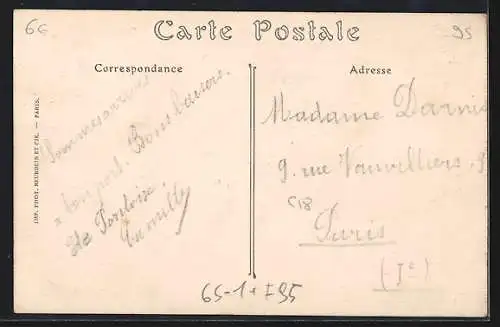 6G
95
Carte Postale
Correspondance
Adresse
IMP. PHOT. NEURDEIN ET CIE. — PARIS.
Sommes arrivés
à bon port. Bons baisers.
de Pontoise.
Camille
Madame Darnis
9. rue Vauvilliers. 9
C18
Paris
(1e)
6S-1+F95